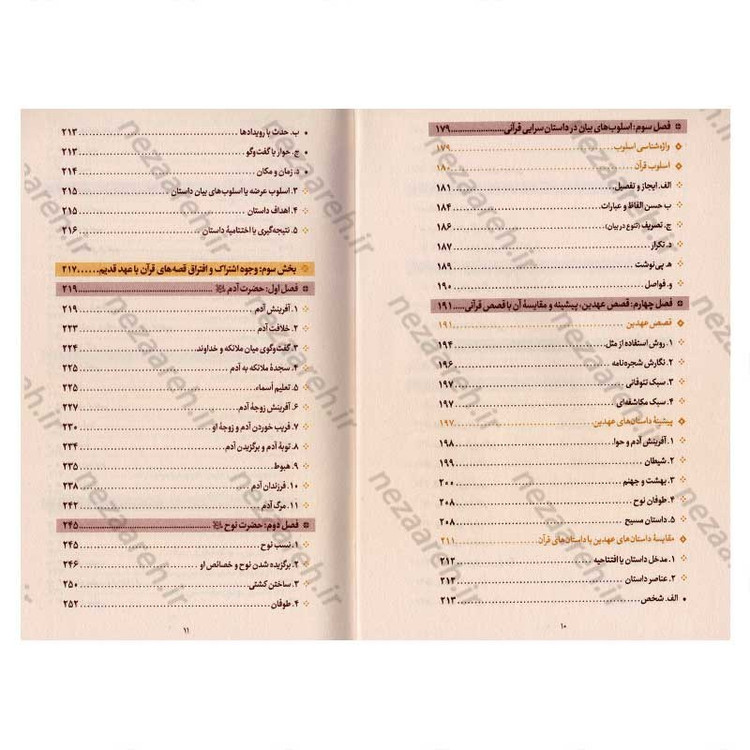 فصل سوم: اسلوب‌های بیان در داستان سرایی قرآنی ........ ۱۷۹
واژه‌شناسی اسلوب ........ ۱۷۹
اسلوب قرآن ........ ۱۸۰
الف. ایجاز و تفصیل ........ ۱۸۱
ب حسن الفاظ و عبارات ........ ۱۸۴
ج. تصریف (تنوع در بیان) ........ ۱۸۶
د. تکرار ........ ۱۸۷
هـ. پی‌نوشت ........ ۱۸۹
و. فواصل ........ ۱۹۰
فصل چهارم: قصص عهدین، پیشینه و مقایسهٔ آن با قصص قرآنی ........ ۱۹۱
قصص عهدین ........ ۱۹۱
۱. روش استفاده از مثل ........ ۱۹۴
۲. نگارش شجره‌نامه ........ ۱۹۶
۳. سبک تئوفانی ........ ۱۹۷
۴. سبک مکاشفه‌ای ........ ۱۹۷
پیشینهٔ داستان‌های عهدین ........ ۱۹۷
۱. آفرینش آدم و حوا ........ ۱۹۸
۲. شیطان ........ ۱۹۹
۳. بهشت و جهنم ........ ۲۰۰
۴. طوفان نوح ........ ۲۰۸
۵. داستان مسیح ........ ۲۰۸
مقایسهٔ داستان‌های عهدین با داستان‌های قرآن ........ ۲۱۱
۱. مدخل داستان یا افتتاحیه ........ ۲۱۲
۲. عناصر داستان ........ ۲۱۳
الف. شخص ........ ۲۱۳
۱۰
ب. حدث یا رویدادها ........ ۲۱۳
ج. حوار یا گفت‌وگو ........ ۲۱۳
د. زمان و مکان ........ ۲۱۴
۳. اسلوب عرضه یا اسلوب‌های بیان داستان ........ ۲۱۵
۴. اهداف داستان ........ ۲۱۵
۵. نتیجه‌گیری یا اختتامیهٔ داستان ........ ۲۱۶
بخش سوم: وجوه اشتراک و افتراق قصه‌های قرآن با عهد قدیم ........ ۲۱۷
فصل اول: حضرت آدم ........ ۲۱۹
۱. آفرینش آدم ........ ۲۱۹
۲. خلافت آدم ........ ۲۲۳
۳. گفت‌وگوی میان ملائکه و خداوند ........ ۲۲۴
۴. سجدهٔ ملائکه به آدم ........ ۲۲۵
۵. تعلیم أسماء ........ ۲۲۵
۶. آفرینش زوجهٔ آدم ........ ۲۲۷
۷. فریب خوردن آدم و زوجهٔ او ........ ۲۳۰
۸. توبهٔ آدم و برگزیدن آدم ........ ۲۳۴
۹. هبوط ........ ۲۳۵
۱۰. فرزندان آدم ........ ۲۳۸
۱۱. مرگ آدم ........ ۲۴۲
فصل دوم: حضرت نوح ........ ۲۴۵
۱. نسب نوح ........ ۲۴۵
۲. برگزیده شدن نوح و خصائص او ........ ۲۴۶
۳. ساختن کشتی ........ ۲۵۰
۴. طوفان ........ ۲۵۲
۱۱
nezaareh.ir